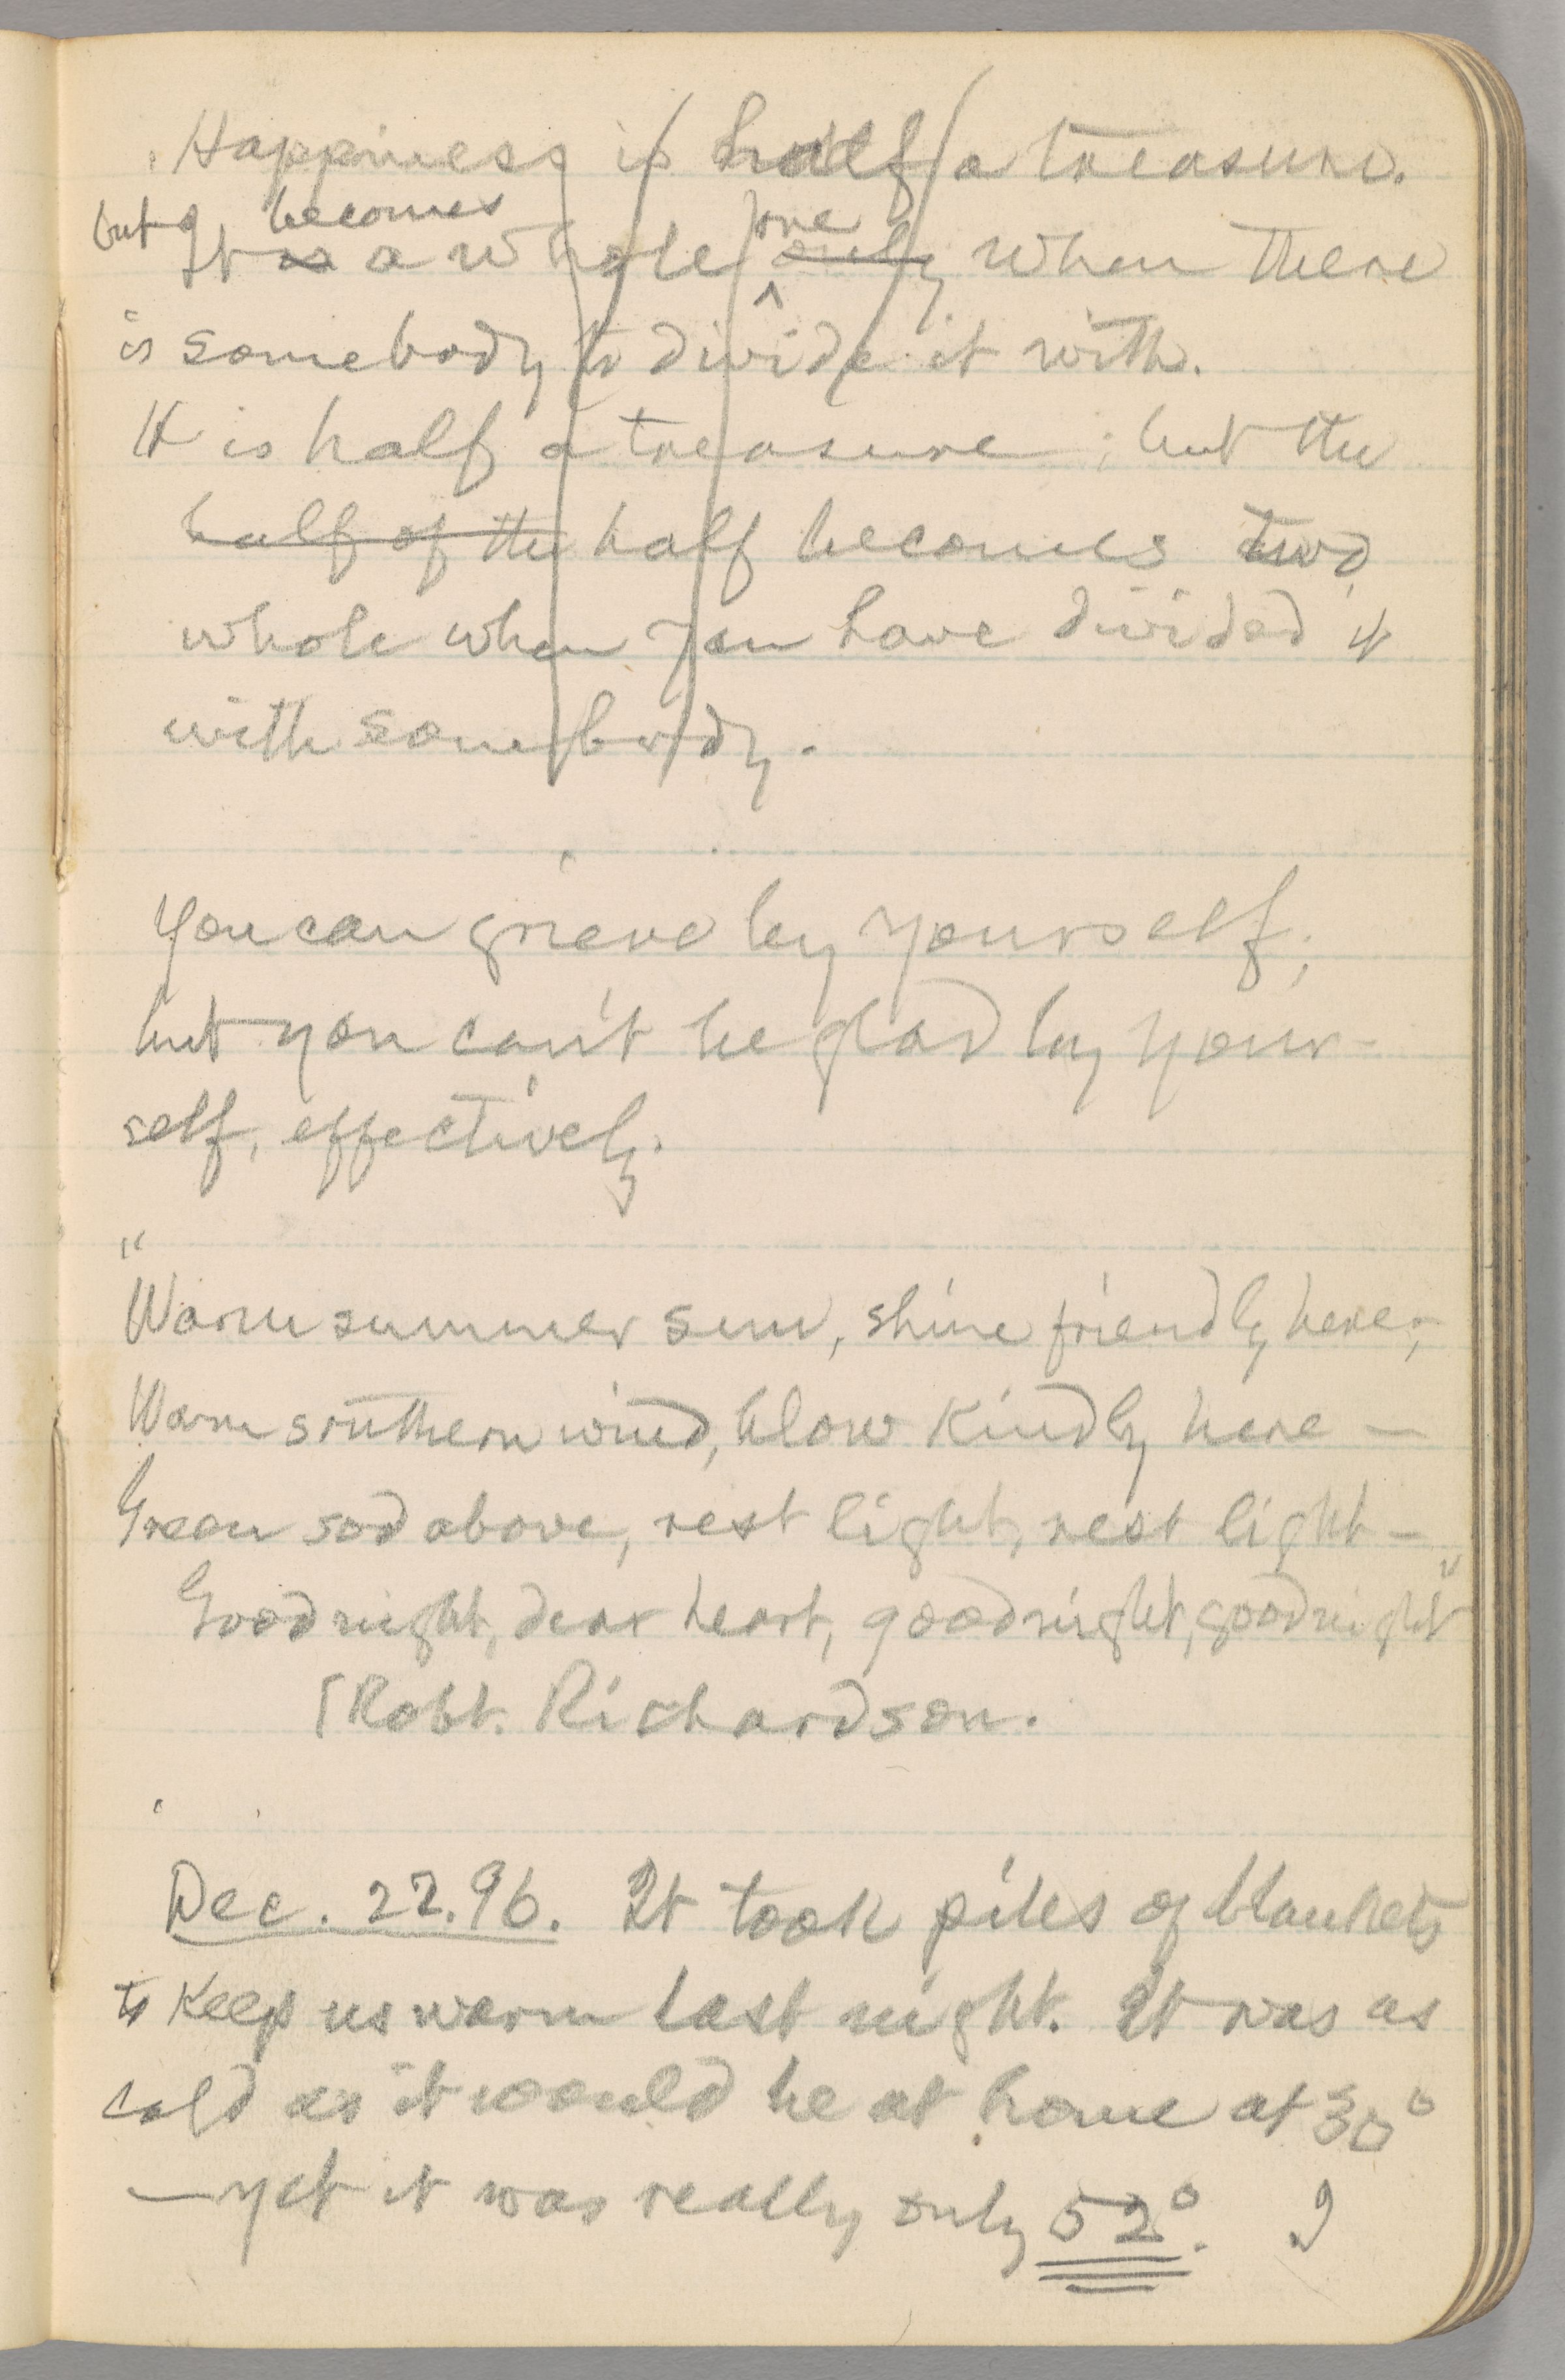 Happiness is half a treasure.
but It is becomes a whole one only when there
is somebody to divide it with.
It is half a treasure; but the
half of the half becomes two
whole when you have divided it
with somebody.
You can grieve by yourself;
but you can't be glad by your-
self, effectively.
"
Warm summer sun, shine friendly here;
Warm southern wind, blow kindly here —
Green sod above, rest light, rest light —
Good night, dear heart, good night, good night"
[Robt. Richardson.
Dec. 22. 96. It took piles of blankets
to keep us warm last night. It was as
cold as it would be at home at 30°
— yet it was really only 52°. I